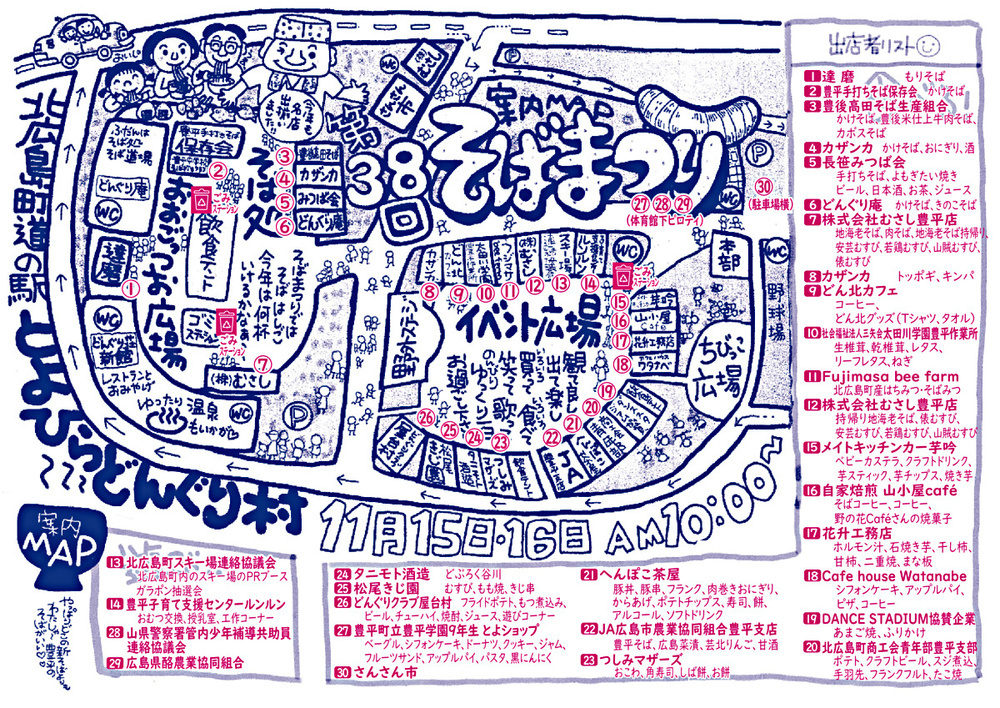 案内MAP
第38回
そばまつり
北広島町道の駅
とよひらどんぐり村
11月15日・16日 AM10:00〜
今年も名店出演しました!!
そば処
おおごっつぉ広場
飲食テント
豊平手打ちそば保存会
どんぐり庵
WC
達磨
WC
どんぐり荘新館
レストランとおみやげ
ゆったり温泉もいいかが
WC
ごみステーション
ごみステーション
(株)むさし
そばまつりは
そばのはしご
今年は何杯
いけるかなぁ
③豊後高田そば
④カザンカ
⑤みつば会
⑥どんぐり庵
①
②
⑦
P
WC
P
P
WC
㉗ ㉘ ㉙
(体育館下ピロティ)
㉚
(駐車場横)
本部
WC
野球場
ちびっこ広場
WC
ごみステーション
イベント広場
野外ステージ
観て食べて
出て楽し
買って食べて
笑って歌って
のびりゆっくり
お過ごし下さい
⑧ ⑨ ⑩ ⑪ ⑫ ⑬ ⑭
⑮
⑯
⑰
⑱
⑲
⑳
㉑
㉒
㉓
㉔
㉕
㉖
カザンカ
どん北
フジマサ
ルンルン
芋吟
山小屋Cafe
花升工務店
カフェハウスワタナベ
JA
案内MAP
出店者リスト
1 達磨 もりそば
2 豊平手打ちそば保存会 かけそば
3 豊後高田そば生産組合
かけそば、豊後米仕上牛肉そば、
カボスそば
4 カザンカ かけそば、おにぎり、酒
5 長笹みつば会
手打ちそば、よもぎたい焼き
ビール、日本酒、お茶、ジュース
6 どんぐり庵 かけそば、きのこそば
7 株式会社むさし豊平店
地海老そば、肉そば、地海老そば持帰り、
安芸むすび、若鶏むすび、山賊むすび、
俵むすび
8 カザンカ トッポギ、キンパ
9 どん北カフェ
コーヒー、
どん北グッズ(Tシャツ、タオル)
10 社会福祉法人三矢会太田川学園豊平作業所
生椎茸、乾椎茸、レタス、
リーフレタス、ねぎ
11 Fujimasa bee farm
北広島町産はちみつ・そばみつ
12 株式会社むさし豊平店
持帰り地海老そば、俵むすび、
安芸むすび、若鶏むすび、山賊むすび
15 メイトキッチンカー芋吟
ベビーカステラ、クラフトドリンク、
芋スティック、芋チップス、焼き芋
16 自家焙煎 山小屋café
そばコーヒー、コーヒー、
野の花Caféさんの焼菓子
17 花升工務店
ホルモン汁、石焼き芋、干し柿、
甘柿、二重焼、まな板
18 Cafe house Watanabe
シフォンケーキ、アップルパイ、
ピザ、コーヒー
19 DANCE STADIUM協賛企業
あまご焼、ふりかけ
20 北広島町商工会青年部豊平支部
ポテト、クラフトビール、スジ煮込、
手羽先、フランクフルト、たこ焼
13 北広島町スキー場連絡協議会
北広島町内のスキー場のPRブース
ガラポン抽選会
14 豊平子育て支援センタールンルン
おむつ交換、授乳室、工作コーナー
28 山県警察署管内少年補導共助員
連絡協議会
29 広島県酪農業協同組合
24 タニモト酒造 どぶろく谷川
25 松尾きじ園 むすび、もも焼、きじ串
26 どんぐりクラブ屋台村 フライドポテト、もつ煮込み、
ビール、チューハイ、焼酎、ジュース、遊びコーナー
27 豊平町立豊平学園9年生 とよショップ
ベーグル、シフォンケーキ、ドーナツ、クッキー、ジャム、
フルーツサンド、アップルパイ、パスタ、黒にんにく
30 さんさん市
21 へんぽこ茶屋
豚丼、豚串、フランク、肉巻きおにぎり、
からあげ、ポテトチップス、寿司、餅、
アルコール、ソフトドリンク
22 JA広島市農業協同組合豊平支店
豊平そば、広島菜漬、芸北りんご、甘酒
23 つしみマザーズ
おこわ、角寿司、しば餅、お餅